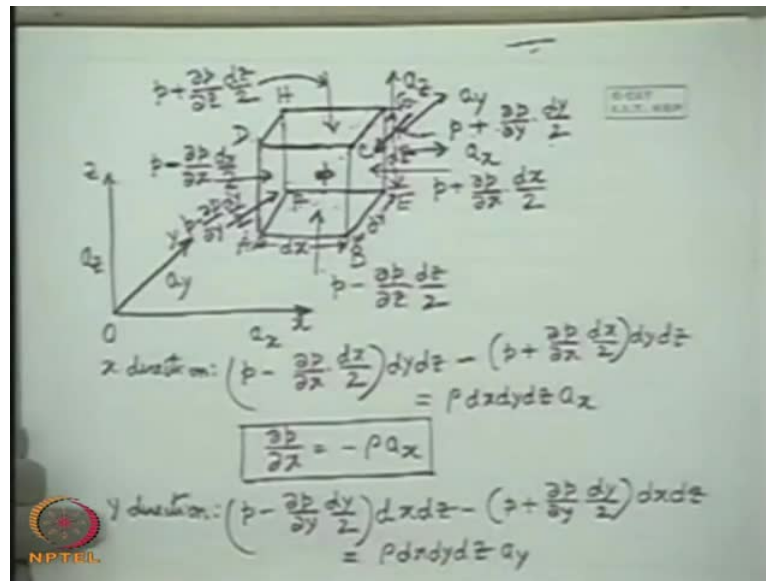 p + ∂p/∂z dz/2
H
az
G
ay
p + ∂p/∂y · dy/2
D
C
ax
p - ∂p/∂x dx/2
p
dz
p + ∂p/∂x · dx/2
z
F
E
p - ∂p/∂y dy/2
Y
A
dx
B
dy
az
ay
p - ∂p/∂z dz/2
O
ax
x
x direction: (p - ∂p/∂x · dx/2) dydz - (p + ∂p/∂x dx/2) dydz
= ρ dxdydz ax
∂p/∂x = - ρ ax
y direction: (p - ∂p/∂y dy/2) dxdz - (p + ∂p/∂y dy/2) dxdz
= ρ dxdydz ay
NPTEL